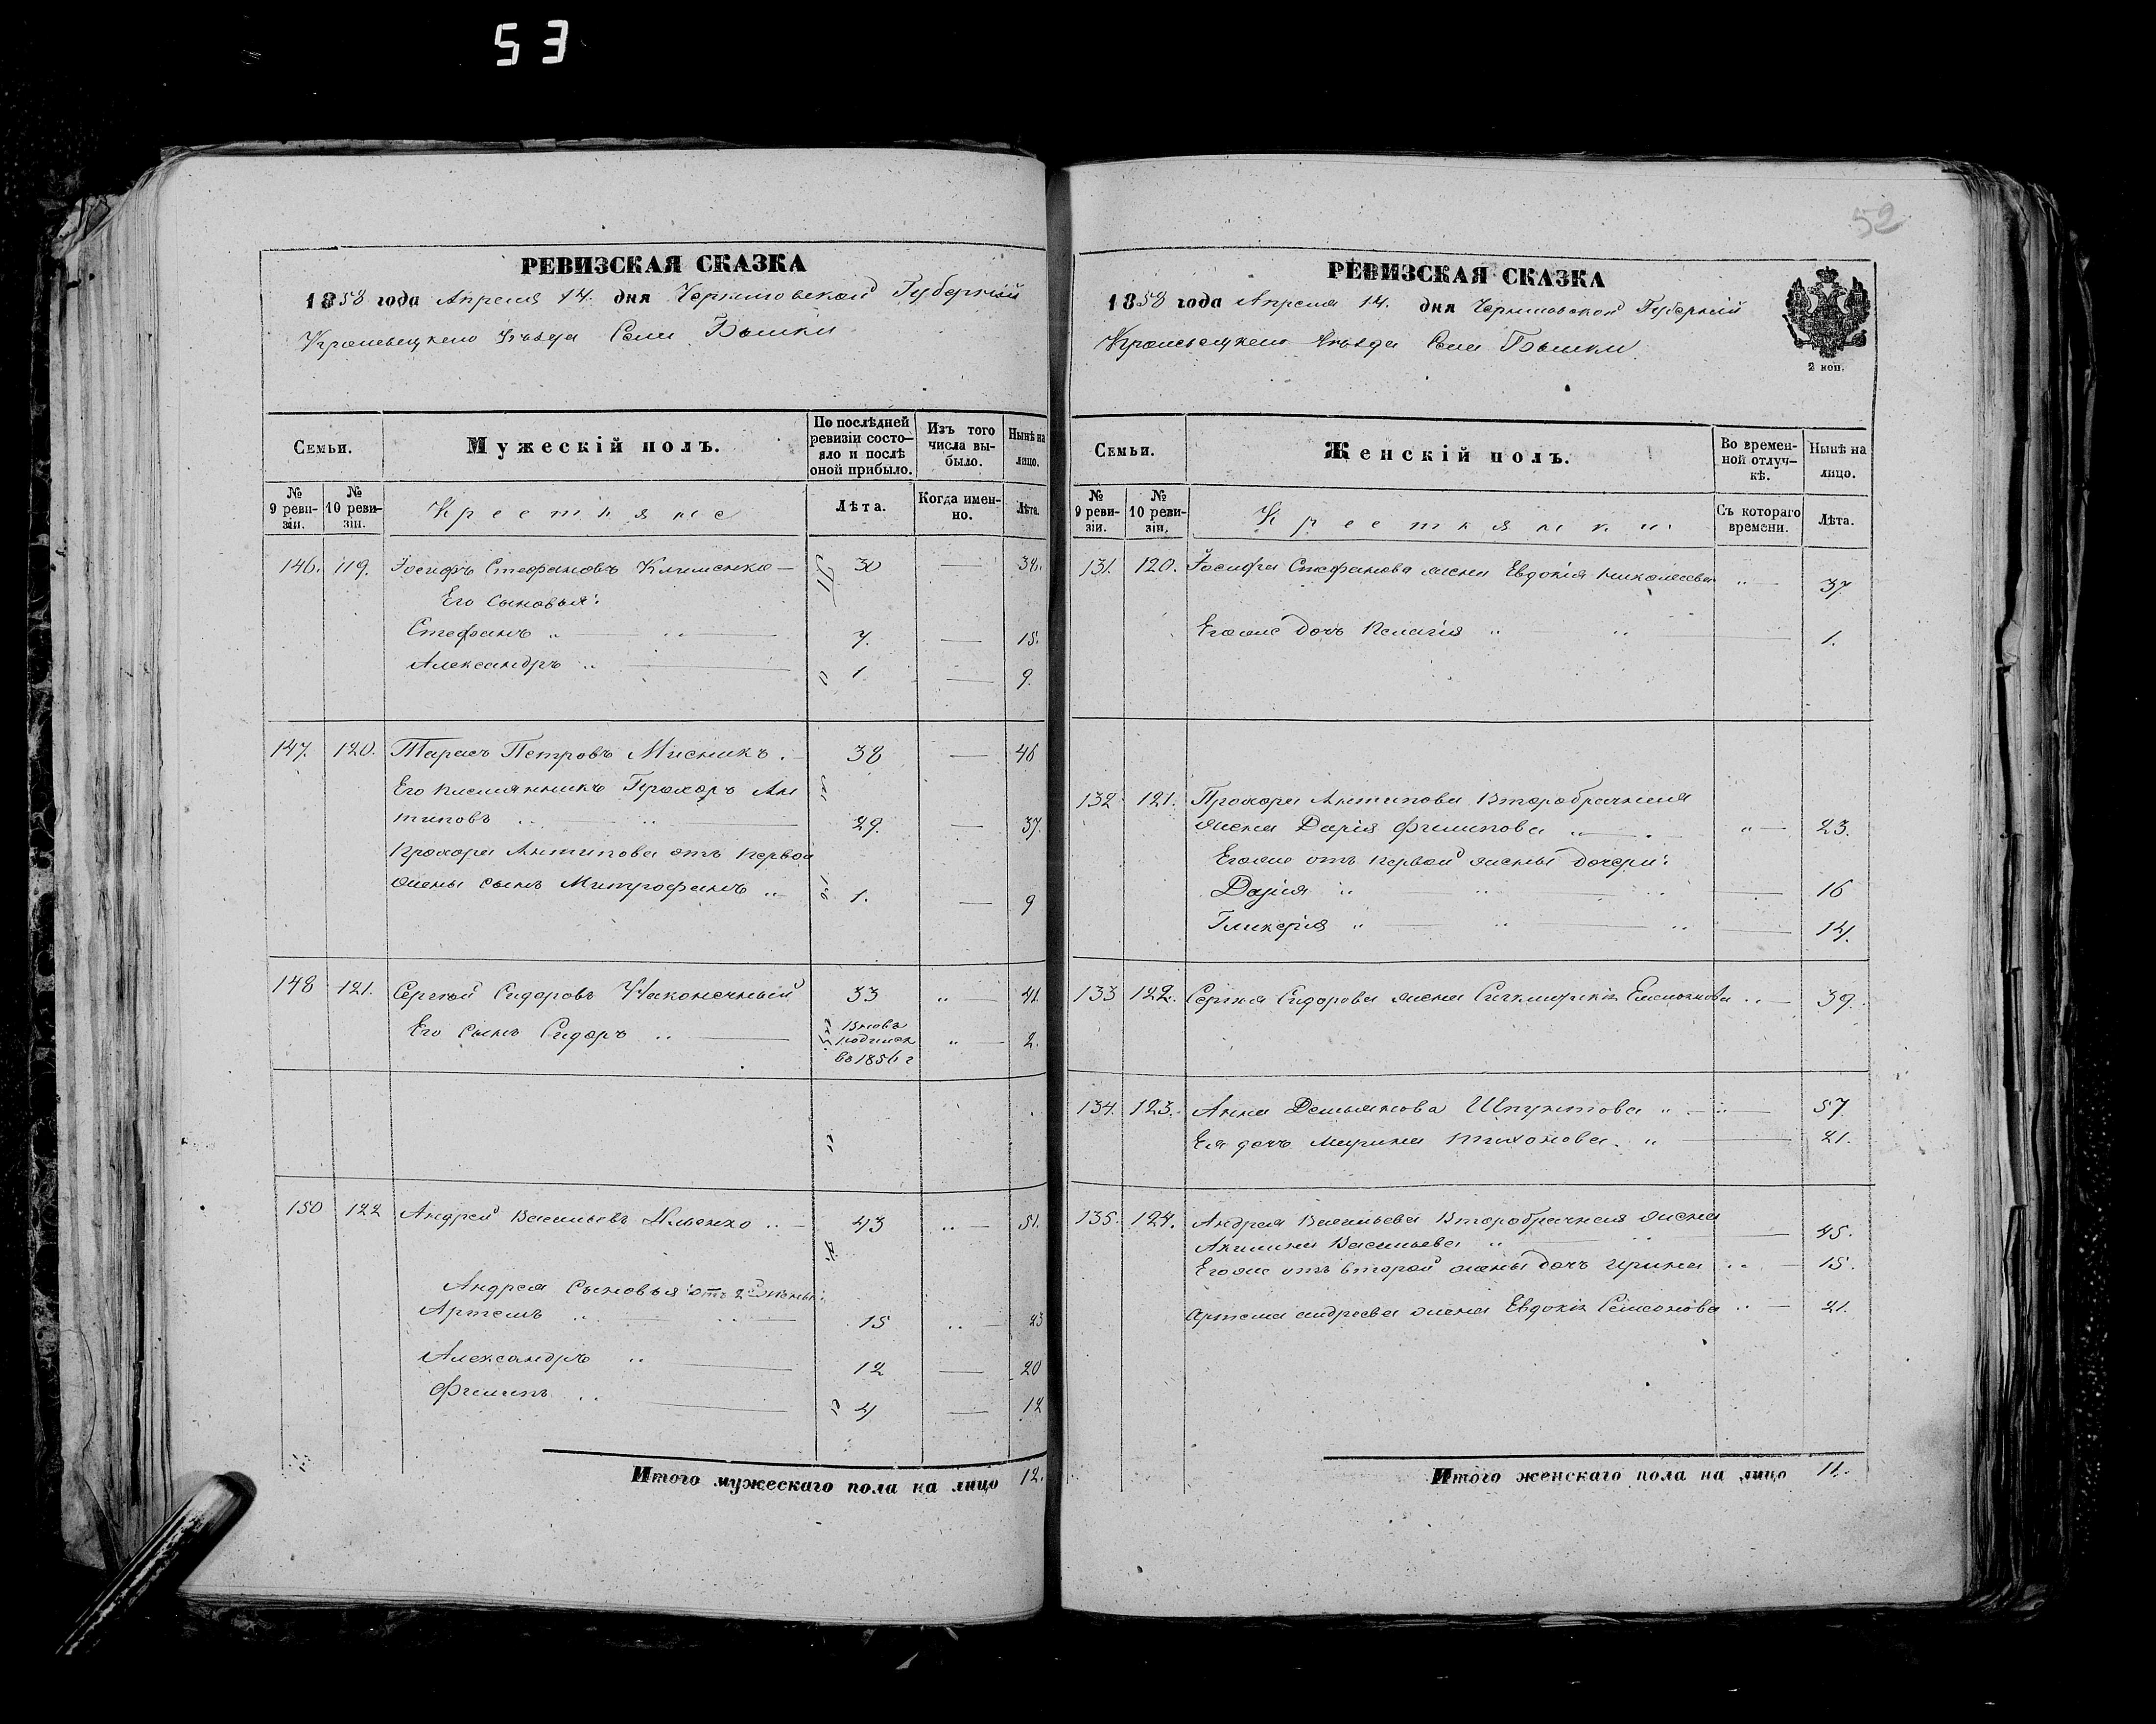 53
РЕВИЗСКАЯ СКАЗКА
1858 года Апреля 14. дня Черниговской Губерніи
Кролевецкого Уѣзда Села Бошки
Семьи.
Мужескій полъ.
По послѣдней ревизіи состо-
яло и послѣ оной прибыло.
Изъ того числа вы-
было.
Нынѣ на лицо.
№ 9 реви-
зіи.
№ 10 реви-
зіи.
Крестьяне
Лѣта.
Когда имен-
но.
Лѣта.
146. 119. Іосифъ Стефановъ Клименко — 30 — 38.
Его сыновья:
Стефанъ „ 7. — 15.
Александръ „ 1 — 9.
147. 120. Тарасъ Петровъ Мисникъ. 38 — 46
Его племянникъ Прохоръ Ан
типовъ „ „ 29. — 37.
Прохора Антипова отъ первой
жены сынъ Митрофанъ „ 1. — 9
148 121. Сергей Сидоровъ 33 „ 41.
Его сынъ Сидоръ „ — Вновь
родился „ — 2.
въ 1856 г
150 122 Андрей Васильевъ „ — 43 „ — 51.
Андрея сыновья отъ 2й жены:
Артемъ „ „ — 15 „ — 23
Александръ „ — 12 — 20
Филипъ „ — 4 — 12
Итого мужескаго пола на лицо 12.
52
РЕВИЗСКАЯ СКАЗКА
1858 года Апреля 14. дня Черниговской Губерніи
Кролевецкого Уѣзда Села Бошки.
2 коп.
Семьи.
Женскій полъ.
Во времен-
ной отлуч-
кѣ.
Нынѣ на лицо.
№ 9 реви-
зіи.
№ 10 реви-
зіи.
Крестьянки
Съ котораго времени.
Лѣта.
131. 120. Іосифа Стефанова жена Евдокія Николаева „ — 37
Егоже дочь Пелагія „ „ — 1.
132 121. Прохора Антипова второбрачная
жена Дарія Филипова „ — „ — 23.
Егоже отъ первой жены дочери:
Дарія „ „ „ — 16
Гликерія „ „ „ — 14.
133 122. Сергея Сидорова жена „ — 39.
134. 123. Анна Демьянова „ — „ — 57
Ея дочь Марина Тихонова. „ — 21.
135. 124. Андрея Васильева второбрачная жена
Акилина Васильева „ „ — 45.
Егоже отъ второй жены дочь Ирина „ — 15.
Артема Андреева жена Евдокія Самсонова „ — 21.
Итого женскаго пола на лицо 11.